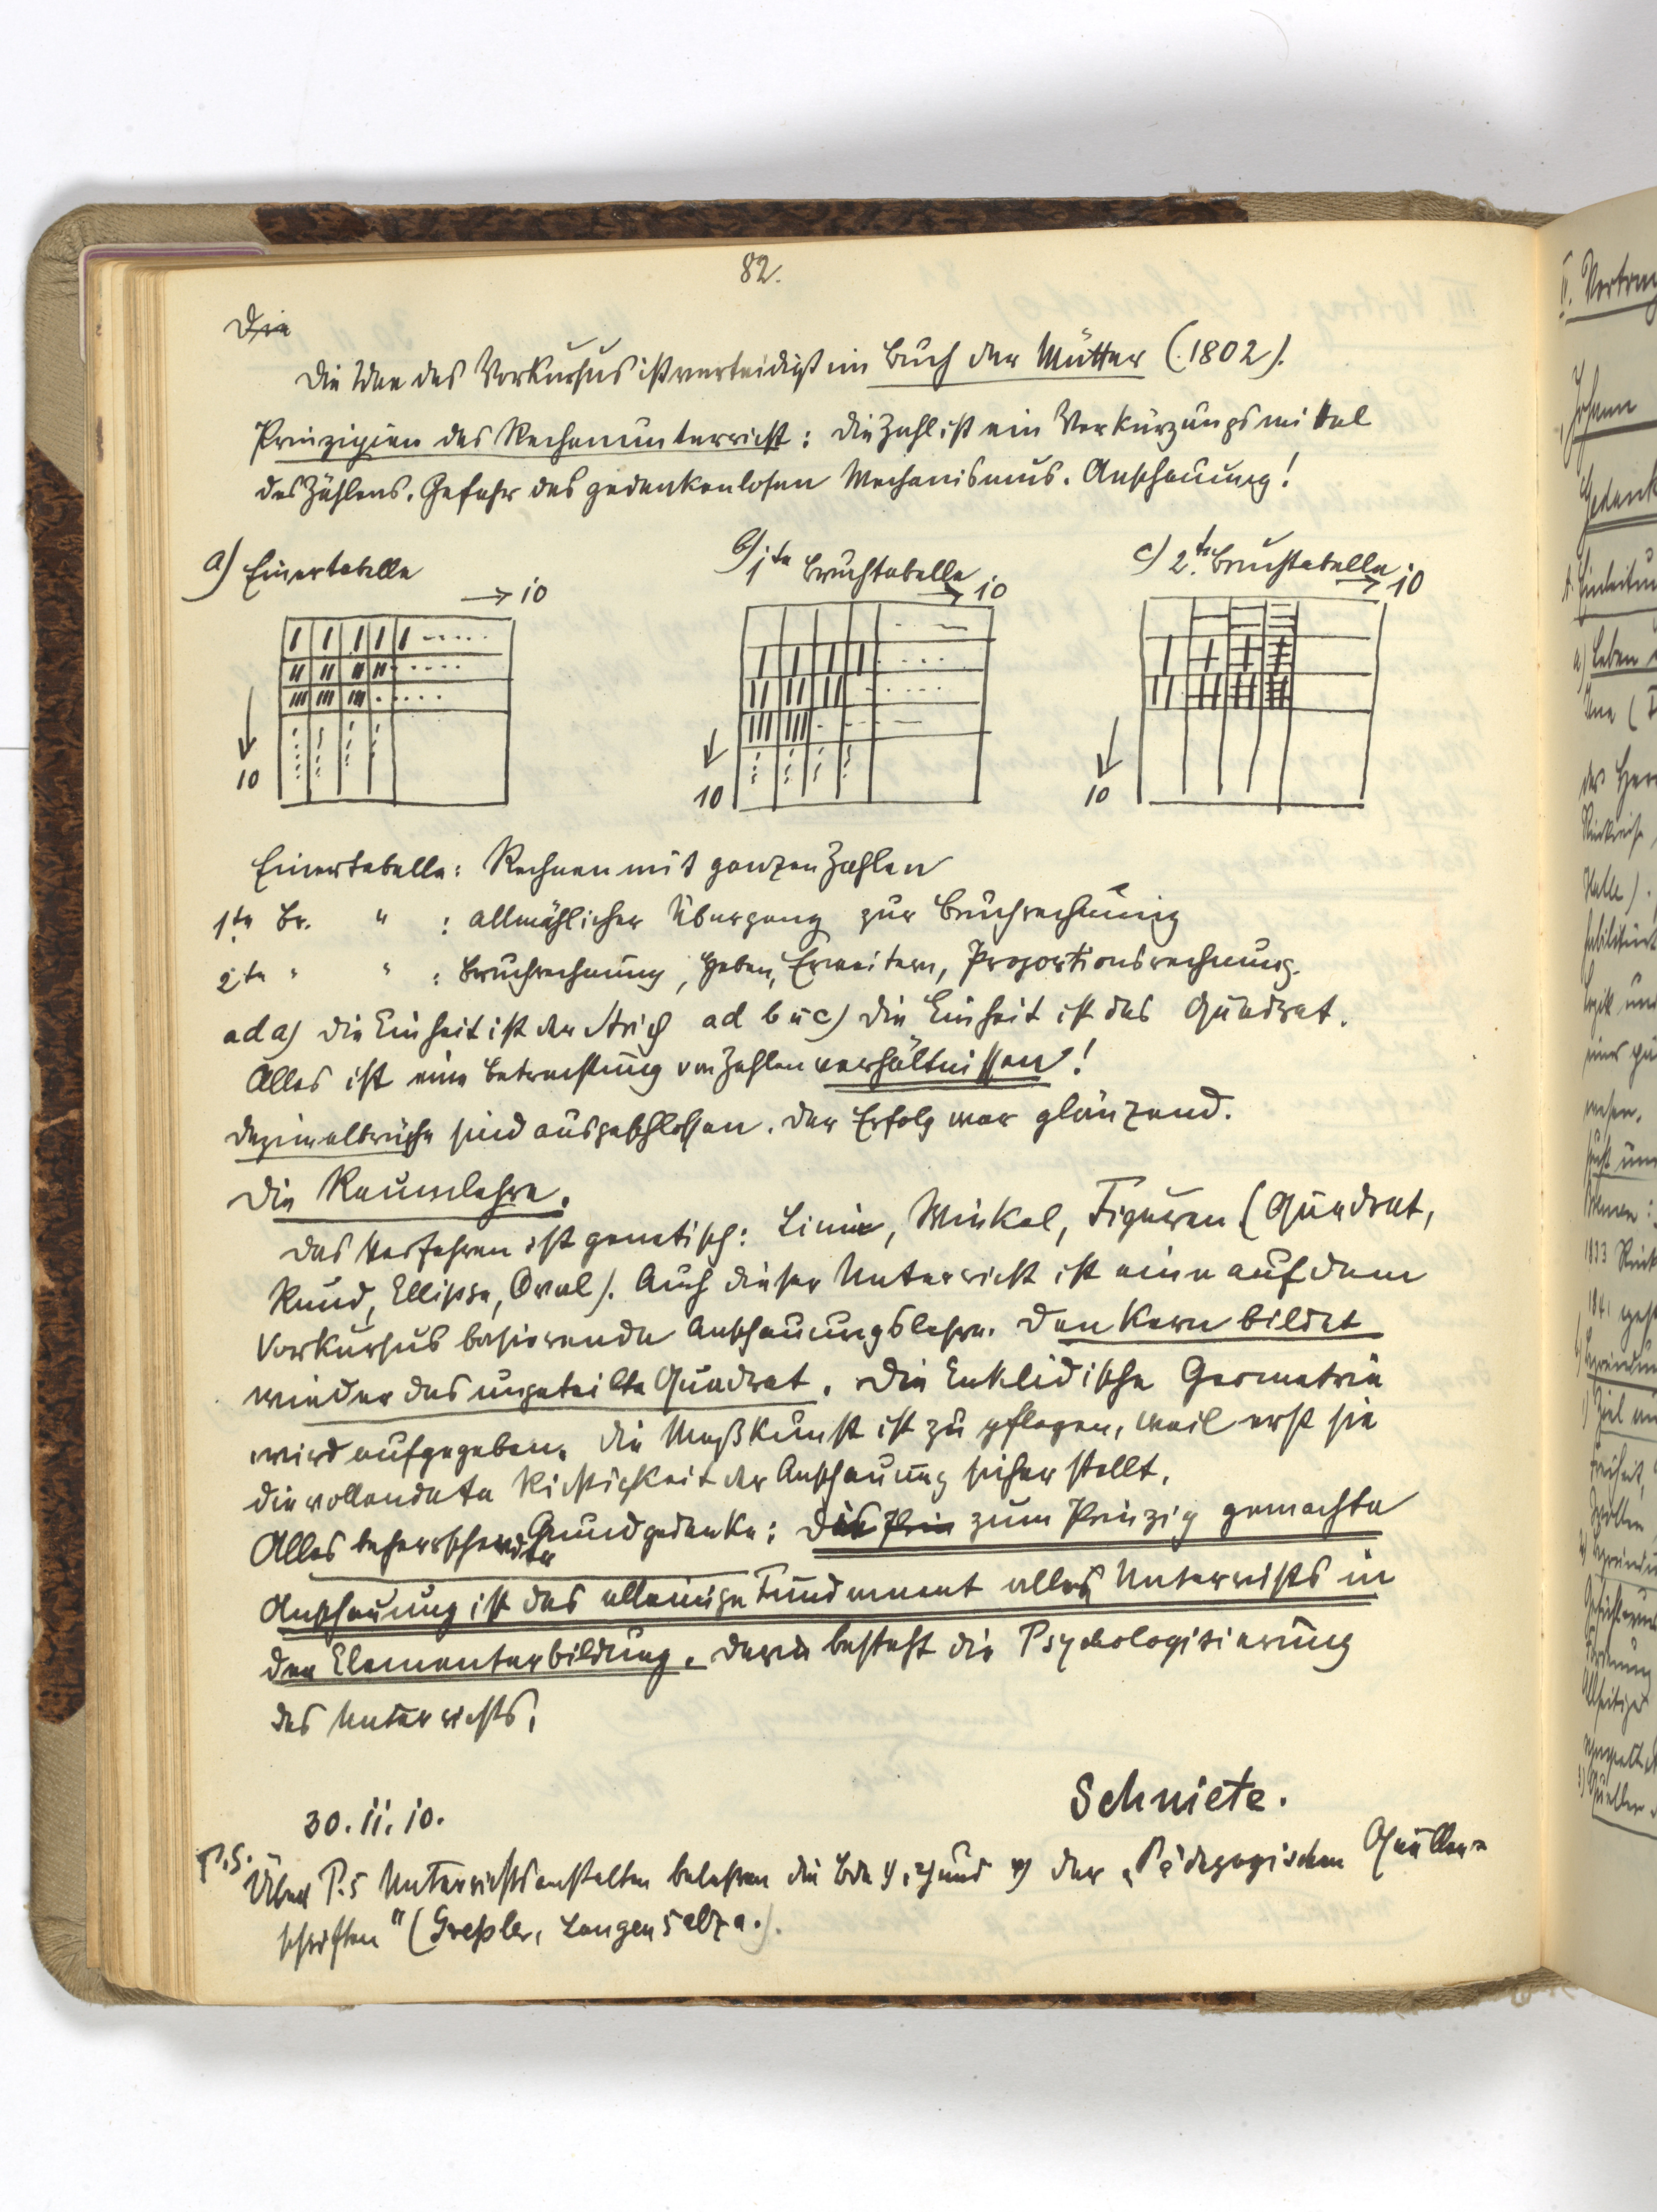 82.
Die
Die Idee des Vorkursus ist verteidigt im Buch der Mütter (1802).
Prinzipien des Rechenunterricht: Die Zahl ist ein Verkürzungsmittel
des Zählens. Gefahr des gedankenlosen Mechanismus. Anschauung!
a) Einertabelle
b) 1te Bruchtabelle
c) 2te Bruchtabelle.
→ 10
→ 10
→ 10
10
10
10
Einertabelle: Rechnen mit ganzen Zahlen
1te Br. " : allmählicher Übergang zur Bruchrechnung
2te " " : Bruchrechnung, Heben, Erweitern, Proportionsrechnung.
ad a) Die Einheit ist der Strich ad b u c) Die Einheit ist das Quadrat.
Alles ist eine Betrachtung von Zahlenverhältnissen!
Dezimalbrüche sind ausgeschlossen. Der Erfolg war glänzend.
Die Raumlehre.
Das Verfahren ist genetisch: Linie, Winkel, Figuren (Quadrat,
Rund, Ellipse, Oval). Auch dieser Unterricht ist eine auf dem
Vorkursus basierende Anschauungslehre. Den Kern bildet
wieder das ungeteilte Quadrat. Die Euklidische Geometrie
wird aufgegeben. Die Maßkunst ist zu pflegen, weil erst sie
die vollendete Richtigkeit der Anschauung sicher stellt.
Alles beherrschender Grundgedanke: Die Prin zum Prinzip gemachte
Anschauung ist das alleinige Fundament alles Unterrichts in
der Elementarbildung. Darin besteht die Psychologisierung
des Unterrichts.
Schniete.
30. 11. 10.
P.S. Über P.s Unterrichtsanstalten belehren die Bde und der „Pädagogischen Quellen-
schriften" (Greßler, Langensalza.).
II. Vortrag
Johann
Gedank
A. Einleitun
a) Leben
Jena (
des Herr
Halle).
habilitiert
Logik und
wesen.
1833
1841 gest
Freiheit,